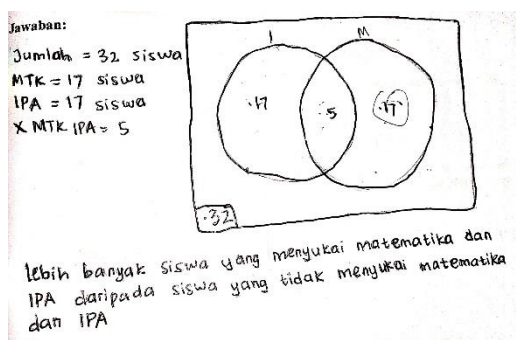 Jawaban:
Jumlah = 32 siswa
MTK = 17 siswa
IPA = 17 siswa
X MTK IPA = 5
I M
.17 .5 .17
.32
lebih banyak siswa yang menyukai matematika dan
IPA daripada siswa yang tidak menyukai matematika
dan IPA